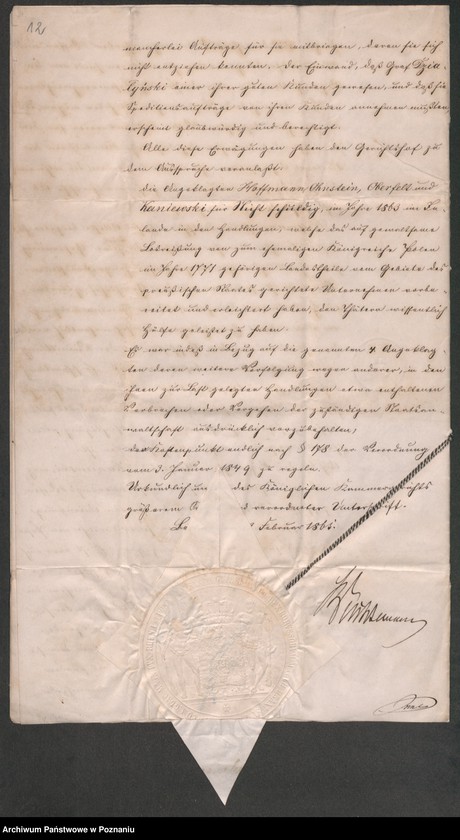 12
mancherlei Aufträge für sie mitbringen, deren sie sich
nicht entziehen konnten. Der Einwand, daß Graf Dzia-
łyński einer ihrer guten Kunden gewesen, und daß sie
Speditionsaufträge von ihren Kunden annehmen mußten
erscheint glaubwürdig und berechtigt.
Alle diese Erwägungen haben den Gerichtshof zu
dem Ausspruche veranlaßt:
die Angeklagten Hoffmann, Ohnstein, Okerfelt und
Kaniewski für Nicht schuldig, im Jahre 1863 im In-
lande in den Handlungen, welche das auf gewaltsame
Losreißung von zum ehemaligen Königreiche Polen
im Jahre 1771 gehörigen Landestheile vom Gebiete des
preußischen Staates gerichtete Unternehmen vorbe-
reitet und erleichtert haben, den Thätern wissentlich
Hülfe geleistet zu haben.
Es war indeß in Bezug auf die genannten 4 Angeklag-
ten deren weitere Verfolgung wegen anderer, in den
ihnen zur Last gelegten Handlungen etwa enthaltenen
Verbrechen oder Vergehen der zuständigen Staatsan-
waltschaft ausdrücklich vorzubehalten,
der Kostenpunkt endlich nach § 178 der Verordnung
vom 3. Januar 1849 zu regeln.
Urkundlich un des Königlichen Kammergerichts
größerem verordneter Unterschrift.
Februar 1865.
Archiwum Państwowe w Poznaniu